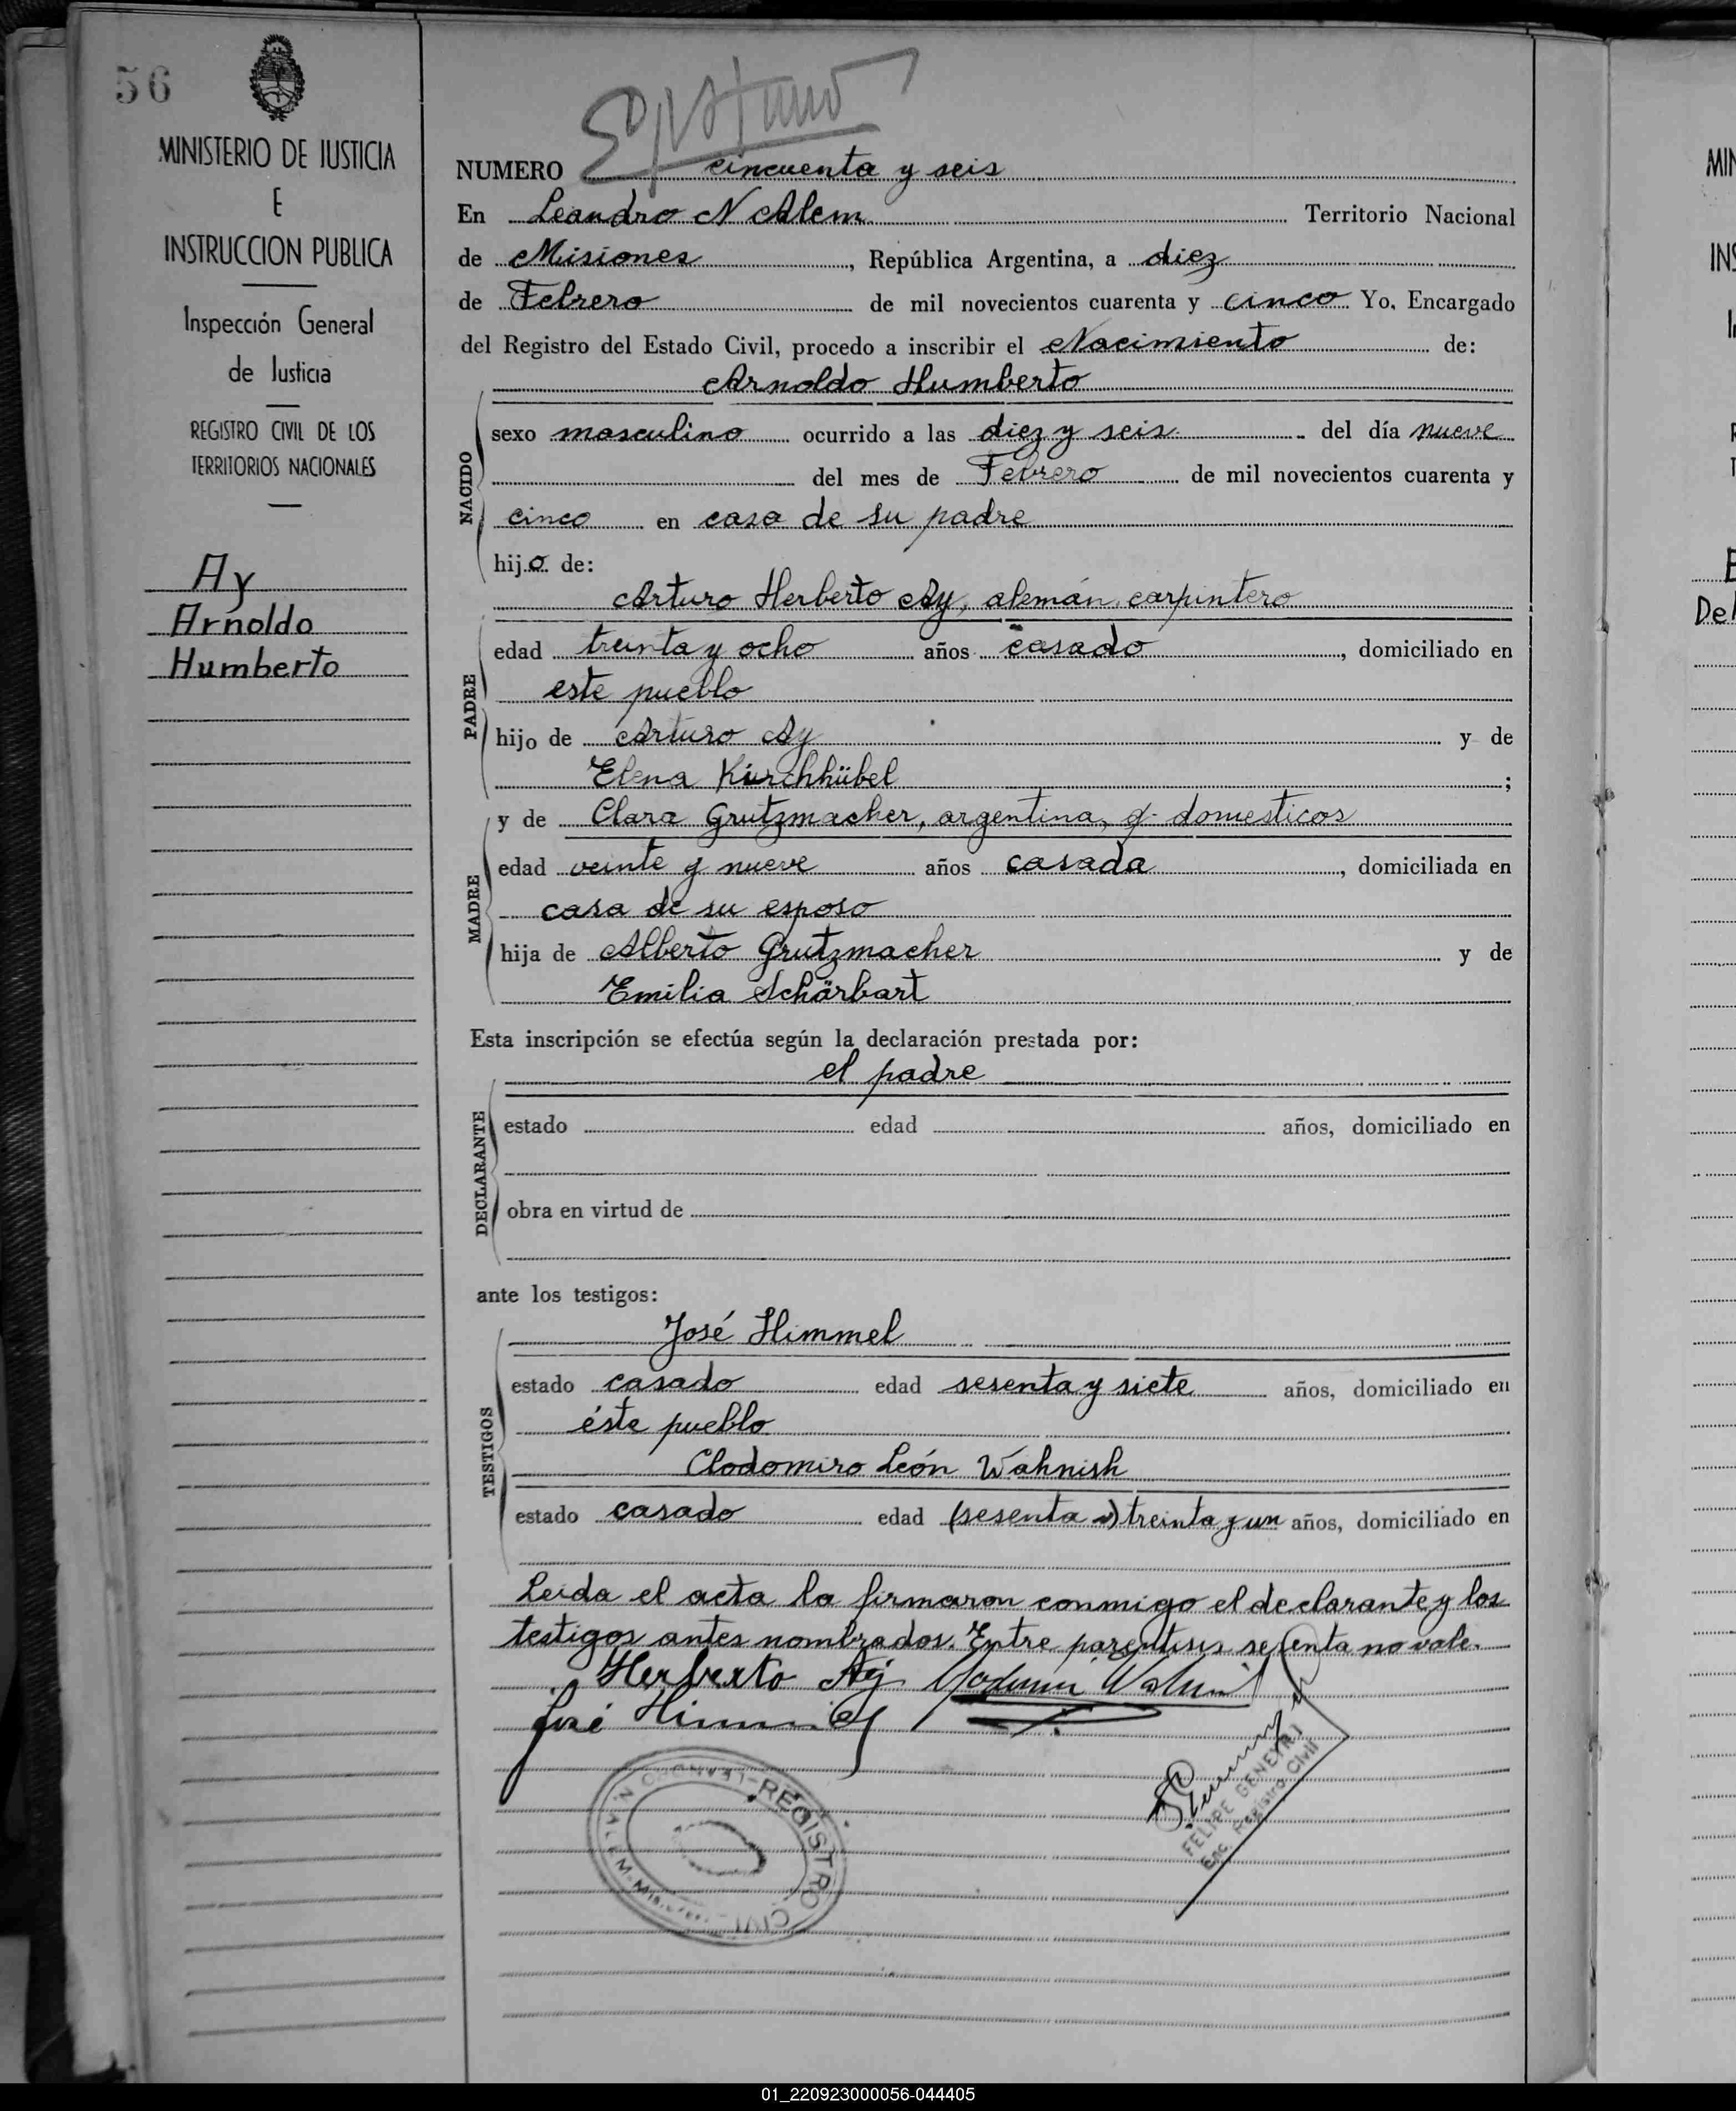 56
MINISTERIO DE JUSTICIA
E
INSTRUCCION PUBLICA
Inspección General
de Justicia
REGISTRO CIVIL DE LOS
TERRITORIOS NACIONALES
Ay
Arnoldo
Humberto
NUMERO cincuenta y seis
En Leandro N Alem Territorio Nacional
de Misiones, República Argentina, a diez
de Febrero de mil novecientos cuarenta y cinco Yo, Encargado
del Registro del Estado Civil, procedo a inscribir el Nacimiento de:
Arnoldo Humberto
NACIDO
sexo masculino ocurrido a las diez y seis del día nueve
del mes de Febrero de mil novecientos cuarenta y
cinco en casa de su padre
hijo de:
Arturo Herberto Ay, alemán, carpintero
PADRE
edad treinta y ocho años casado, domiciliado en
este pueblo
hijo de Arturo Ay y de
Elena Kirchhübel;
MADRE
y de Clara Grutzmacher, argentina, q. domesticos
edad veinte y nueve años casada, domiciliada en
casa de su esposo
hija de Alberto Grutzmacher y de
Emilia Schärbart
Esta inscripción se efectúa según la declaración prestada por:
el padre
DECLARANTE
estado edad años, domiciliado en
obra en virtud de
ante los testigos:
José Himmel
TESTIGOS
estado casado edad sesenta y siete años, domiciliado en
éste pueblo
Clodomiro León Wahnish
estado casado edad (sesenta) treinta y un años, domiciliado en
Leida el acta la firmaron conmigo el declarante y los
testigos antes nombrados. Entre parentisis sesenta no vale.
Herberto Ay
José Himmel
REGISTRO CIVIL
N. ALEM
FELIPE GENEYRO
Enc. Registro Civil
MIN
INS
De
01_220923000056-044405